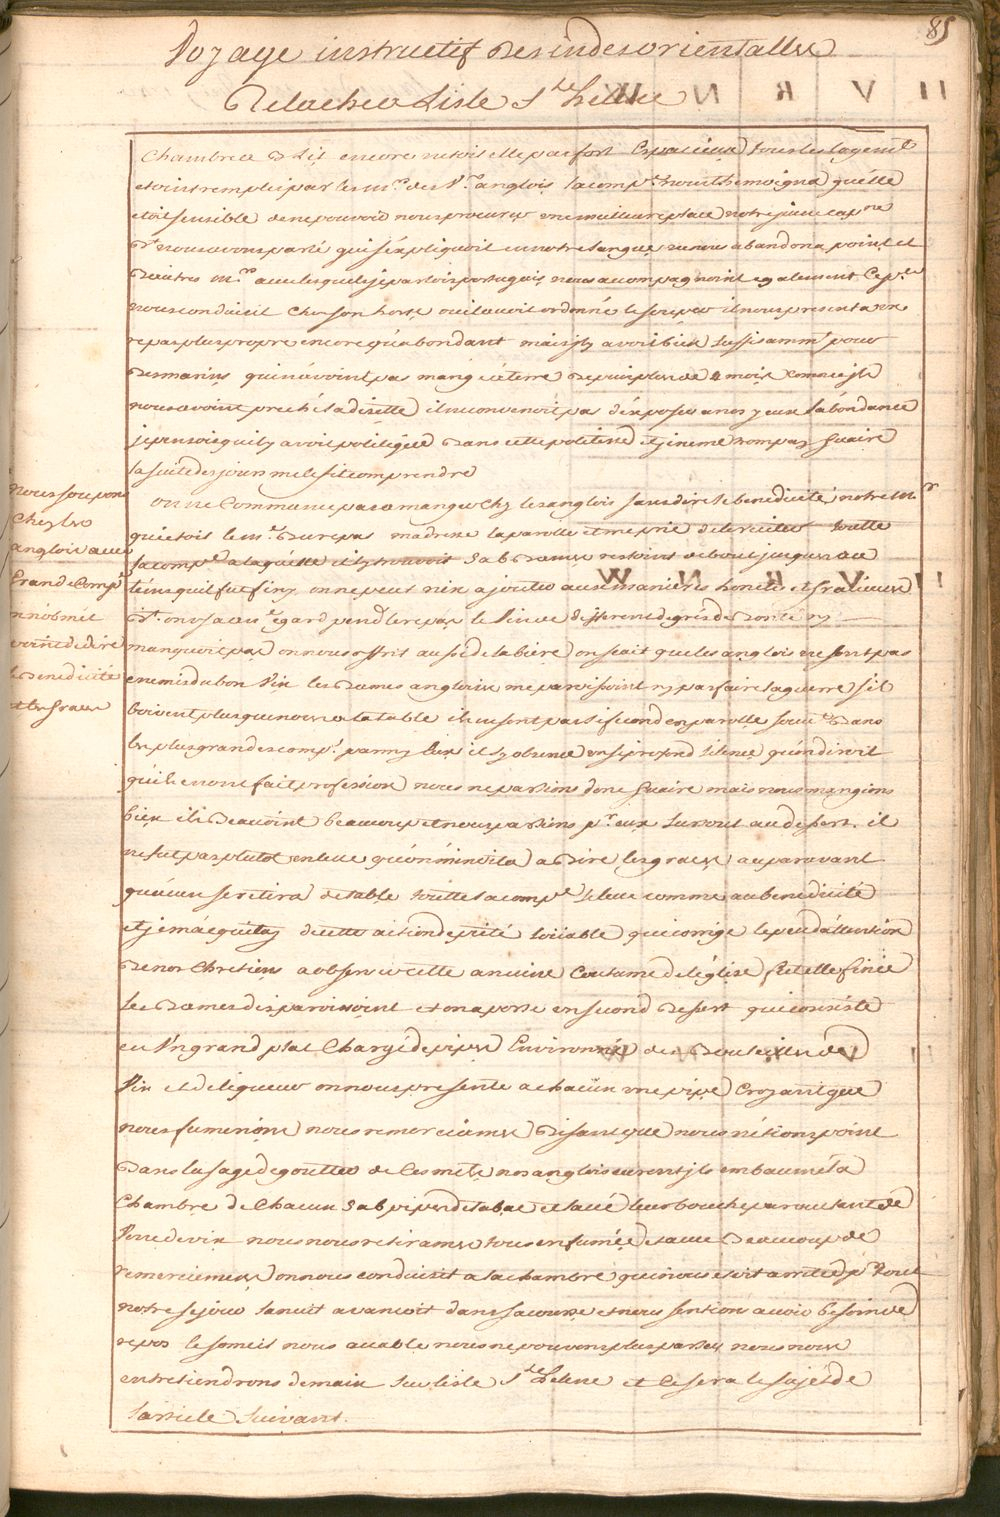 85
Voyage instructif des indes orientalles
Relache a Lisle Ste helene
chambre a Lit encore netoit elle pas fort Espacieuse tous les logemts
etoint remplis par les mrs. des Vx. anglois la compe. nous themoigna quelle
etoit sensible de ne pouvoir nous procurer une meilleure place notre jeune capne
dt. nous avons parlé qui s'expliquoit en notre langue ne nous abandona point et
d'autres mrs. avec lesquels je parlois portugais nous acompagnoint egalement Ce
nous conduisit chez son hoste ou il avoit ordonné le souper il nous presenta un
repas plus propre encore qu'abondant mais il y avoit bien suffisamt. pour
des marins qui n'avoint pas mangé a terre depuis plus de mois comme ils
nous avoint preché la disette il ne convenoit pas d'exposer a nos yeux l'abondance
je pensois quil y avoit politique dans cette politesse et je ne me trompay Guaire
la suitte des jours me le fit comprendre
on ne Commance pas a manger chez les anglois sans dire le benedicité notre mr
qui etois le mr. du repas m'adresse la parolle et me prie de le reciter toutte
la compe. a laquelle il s'y trouvoit dames restoint debout jusques au
téms quil fut finy on ne peut rien ajouter aux manieres honetes et Gratieuses
dt. on usa a nr. egard pendt. le repas le Vin de different degrés de bonté ny
manquoit pas on nous offrit aussi de la biere on scait que les anglois ne sont pas
enemis du bon Vin les dames angloises me paroissoint ny pas faire la guerre s'il
boivent plus que nous a la table ils ne sont pas si fecond en parolle souvt. dans
les plus grandes compes. parmy Eux il s'y observe un si profond silence qu'on diroit
qu'ils en ont fait profession nous ne parlions donc Guaire mais nous mangions
bien ils beuvoint beaucoup et nous parlions pr. eux surtout au desert. il
ne fut pas plutot enleué qu'on m'invita a dire les graces auparavant
qu'aucun se retira de table toutte la compe. se leue comme au benedicité
et je m'acquitay de cette action de pieté loüable qui corrige le peu d'attention
de nos Chretiens a observer cette ancienne Coutume de l'église fut elle finie
les dames disparoissoint et on aporte un second desert qui consiste
en Vn grand plat Chargé de pipes Environné des bouteilles de
Vin et de liqueur on nous presente a chacun une pipe Croyant que
nous fumerions nous remerciames disant que nous n'étions point
dans lusage de goutter de Ces mets nos anglois eurent ils embaumé la
Chambre de Chacun pipes de tabac et laué leur bouche par autant de
Verre de vin nous nous retirames tous enfumée et avec beaucoup de
remerciemens on nous conduisit a la chambre qui nous etoit arrétée pr. tout
notre sejour la nuit avancoit dans sa course et nous sentions avoir besoin de
repos le someil nous acable nous ne pouvons plus parler nous nous
entretiendrons demain sur lisle Ste helene et ce sera le sujet de
larticle suivant.
nous soupons
chez les
anglois avec
Grande Compe
on n'obmet
point de dire
le Benedicité
et les Graces